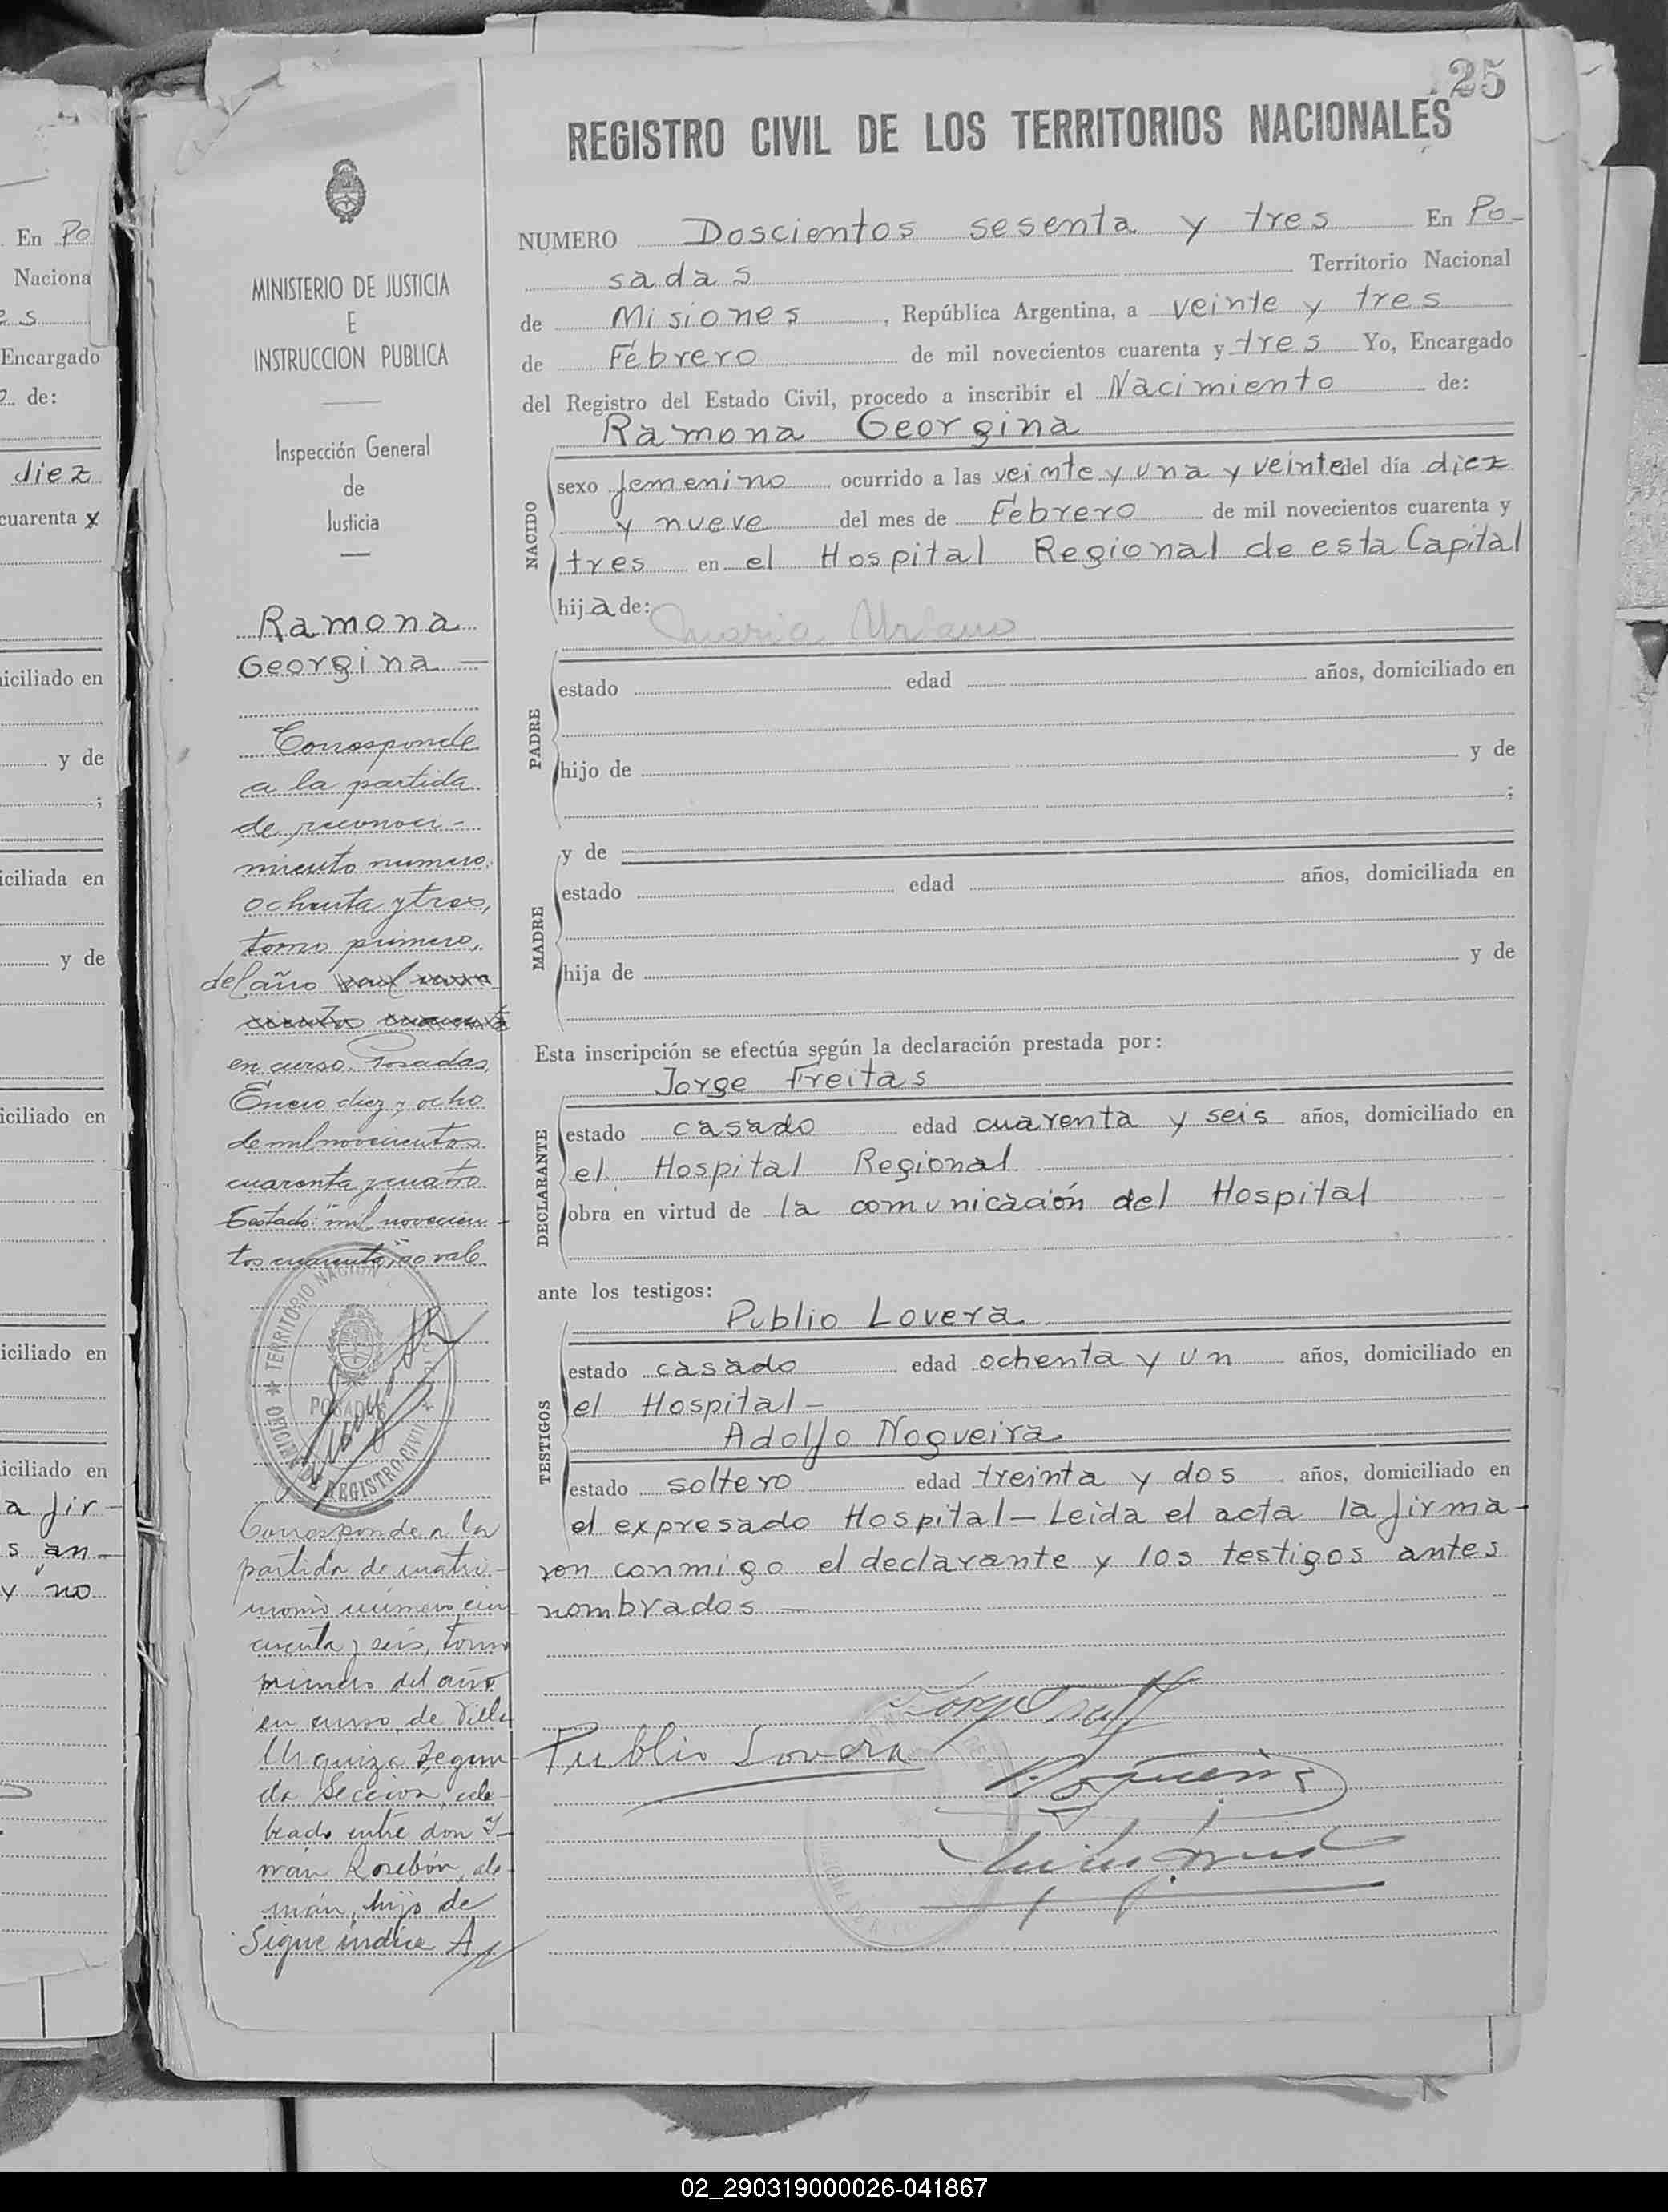 25
REGISTRO CIVIL DE LOS TERRITORIOS NACIONALES
NUMERO Doscientos sesenta y tres En Po-
sadas Territorio Nacional
de Misiones, República Argentina, a veinte y tres
de Febrero de mil novecientos cuarenta y tres Yo, Encargado
del Registro del Estado Civil, procedo a inscribir el Nacimiento de:
Ramona Georgina
NACIDO
sexo femenino ocurrido a las veinte y una y veinte del día diez
y nueve del mes de Febrero de mil novecientos cuarenta y
tres en el Hospital Regional de esta Capital
hija de:
Maria Urbano
PADRE
estado edad años, domiciliado en
hijo de y de
;
y de
MADRE
estado edad años, domiciliada en
hija de y de
Esta inscripción se efectúa según la declaración prestada por:
Jorge Freitas
DECLARANTE
estado casado edad cuarenta y seis años, domiciliado en
el Hospital Regional
obra en virtud de la comunicación del Hospital
ante los testigos:
Publio Lovera
TESTIGOS
estado casado edad ochenta y un años, domiciliado en
el Hospital-
Adolfo Nogueira
estado soltero edad treinta y dos años, domiciliado en
el expresado Hospital- Leida el acta la firma-
ron conmigo el declarante y los testigos antes
nombrados -
Publio Lovera
MINISTERIO DE JUSTICIA
E
INSTRUCCION PUBLICA
Inspección General
de
Justicia
Ramona
Georgina -
Corresponde
a la partida
de reconoci-
miento numero
ochenta y tres,
tomo primero,
del año mil nove
cientos cuarenta
en curso. Posadas,
Enero diez y ocho
de mil novecientos
cuarenta y cuatro
Testado: "mil novecien-
tos cuarenta", no vale
TERRITORIO NACION
POSADAS
OFICINA DE REGISTRO CIVIL
Corresponde a la
partida de matri-
monio número cin
cuenta y seis, tomo
primero del año
en curso, de Villa
Urquiza Segun-
da Seccion, cele-
brado entre don
alemán, hijo de
Sigue indice A
En Po
Naciona
es
Encargado
de:
diez
cuarenta y
iciliado en
y de
;
iciliada en
y de
iciliado en
iciliado en
iciliado en
a fir-
s an-
y no
02_290319000026-041867